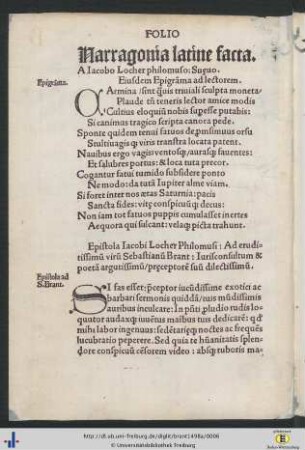 FOLIO
Narragonia latine facta.
A Iacobo Locher philomuso: Sueuo.
Eiusdem Epigrāma ad lectorem.
Epigrāma.
CArmina sint q̃uis triuiali sculpta moneta
Plaude tñ teneris lector amice modis
Cultius eloquiū nobis supesse putabis:
Si canimus tragico scripta canora pede.
Sponte quidem tenui fatuos depmsimus orsu
Stultiuagis qʒ viris transtra locata patent.
Nauibus ergo vagis ventosqʒ, aurasqʒ fauentes:
Et salubres portus: & loca tuta precor.
Cogantur fatui tumido subsidere ponto
Ne modo: da tuta Iupiter alme viam.
Si foret inter nos ætas Saturnia: pacis
Sancta fides: vitę conspicuusqʒ decus:
Non iam tot fatuos puppis cumulasset inertes
Aequora qui sulcant: velaqʒ picta trahunt.
Epistola Iacobi Locher Philomusi: Ad erudi
tissimū virū Sebastianū Brant: Iurisconsultum &
poetā argutissimū: pręceptorē suū dilectissimū.
Epistola ad
S. Brant.
SI fas esset: pręceptor iucūdissime exotici ac
barbari sermonis quiddā: tuis mūdissimis
auribus inculcare: In pñti pludio rudis lo-
quutor audaxqʒ iuuēus maibus tuis dedicarē: qd
mihi labor ingenuus: sedētarięqʒ noctes ac frequēs
lucubratio peperere. Sed quia te hūanitatis splen
dore conspicuū cēsorem video: absqʒ rubotis ma-
http://dl.ub.uni-freiburg.de/diglit/brant1498a/0006
© Universitätsbibliothek Freiburg